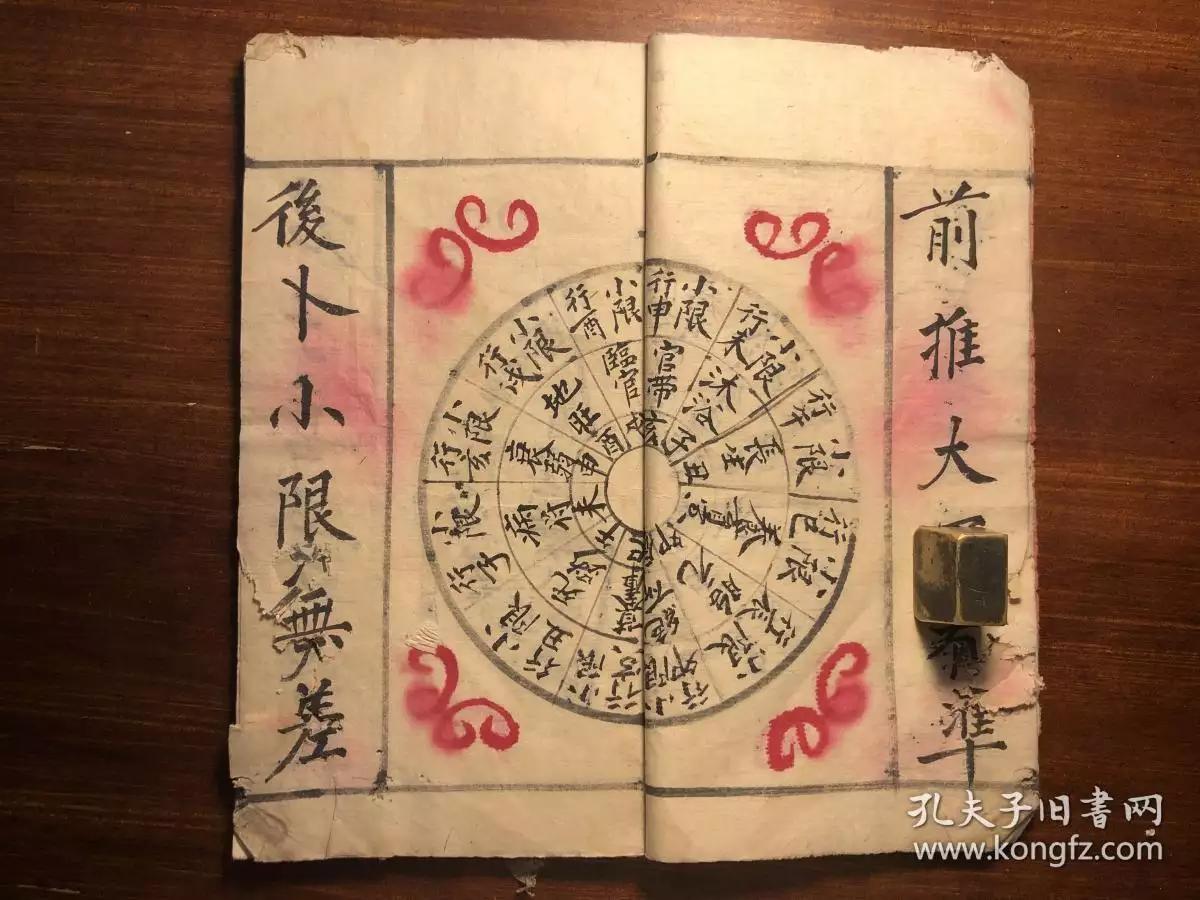 前推大
準
後卜小限
無差
小限
行申
官帶
亥
小限
行未
沐浴
子
小限
行午
長生
丑
小限
行巳
養
小限
行辰
胎
小限
行卯
絕
小限
行丑
小限
行子
病符
未
小限
行亥
衰
申
小限
行戌
地旺
酉
小限
行酉
臨官
戌
孔夫子旧書网
www.kongfz.com